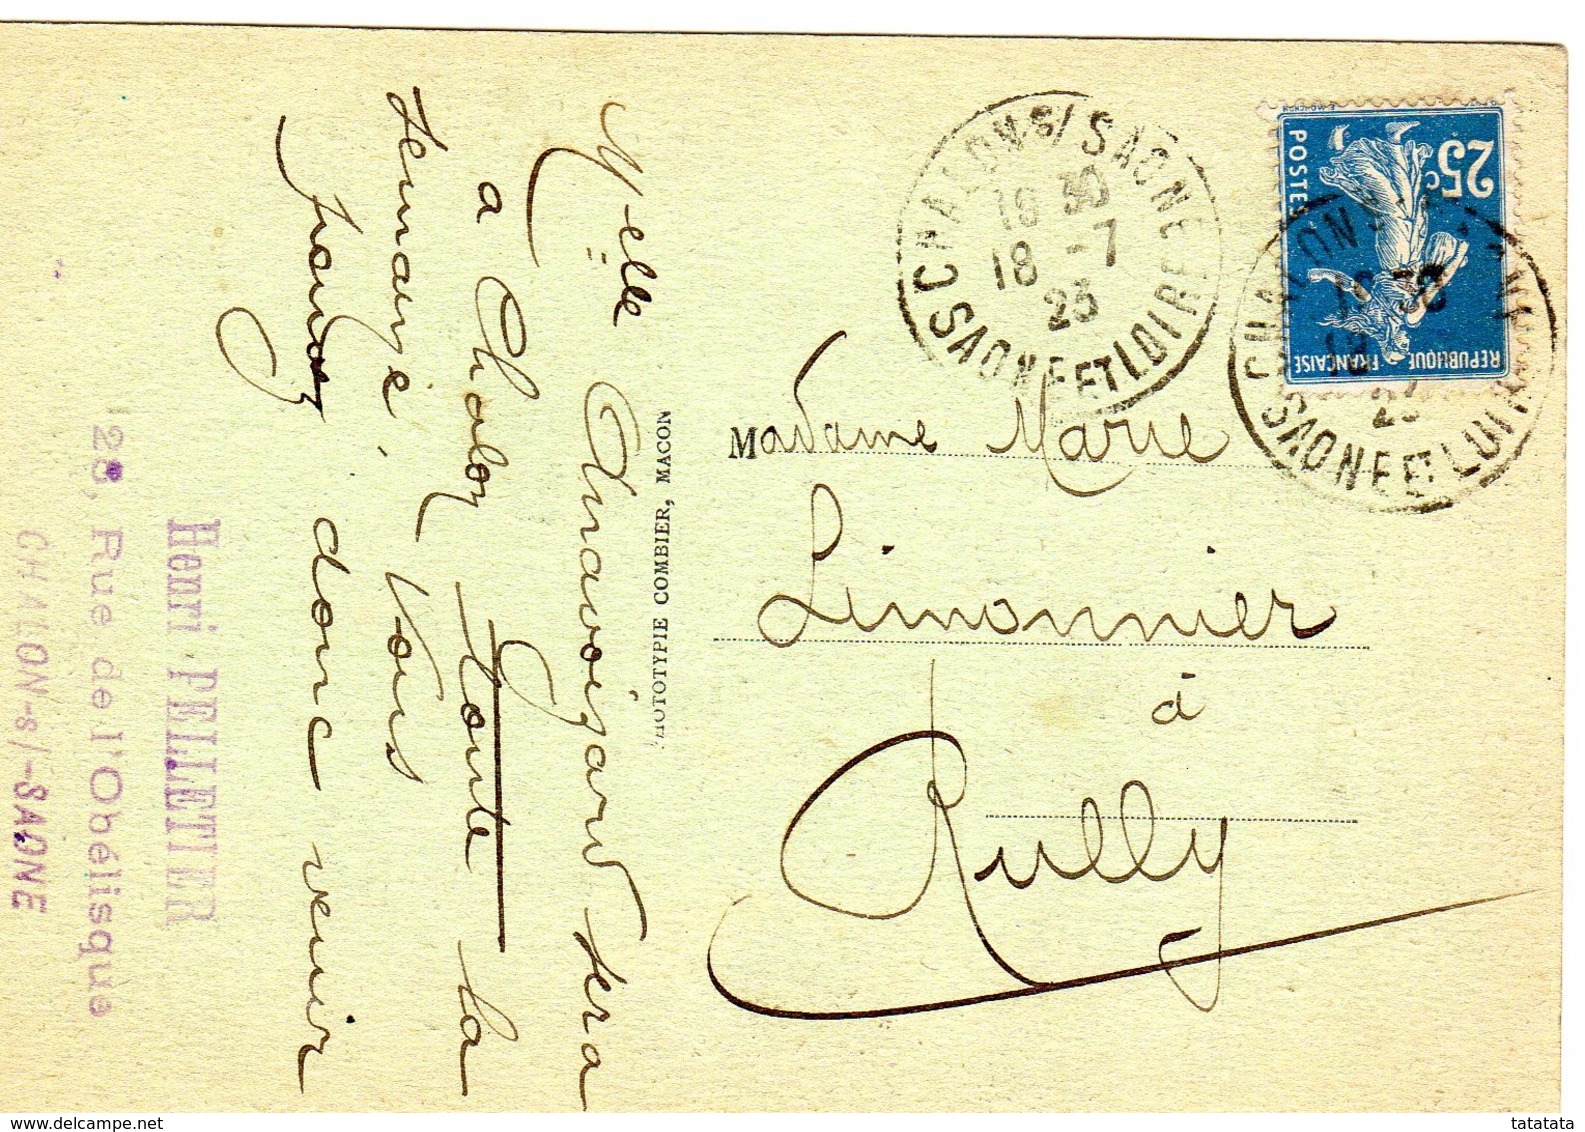 Melle Amavoizard sera
à Chalon toute la
semaine, vous
pouvez donc venir
Henri PELLETIER
28, Rue de l'Obélisque
CHALON-s/-SAONE
PHOTOTYPIE COMBIER, MACON
CHALON S/ SAONE
18 30
18 -7
23
SAONE ET LOIRE
25c
POSTES
REPUBLIQUE FRANÇAISE
CHALON S/ SAONE
18 30
18
23
SAONE ET LOIRE
Madame Marie
Limonnier
à
Rully
www.delcampe.net
tatatata